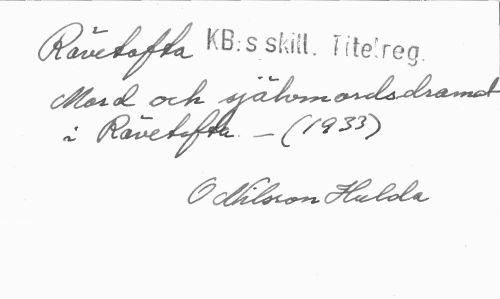 Rävetofta KB:s skill. Titelreg.
Mord och självmordsdramat
i Rävetofta. – (1933)
O Nilsson Hulda